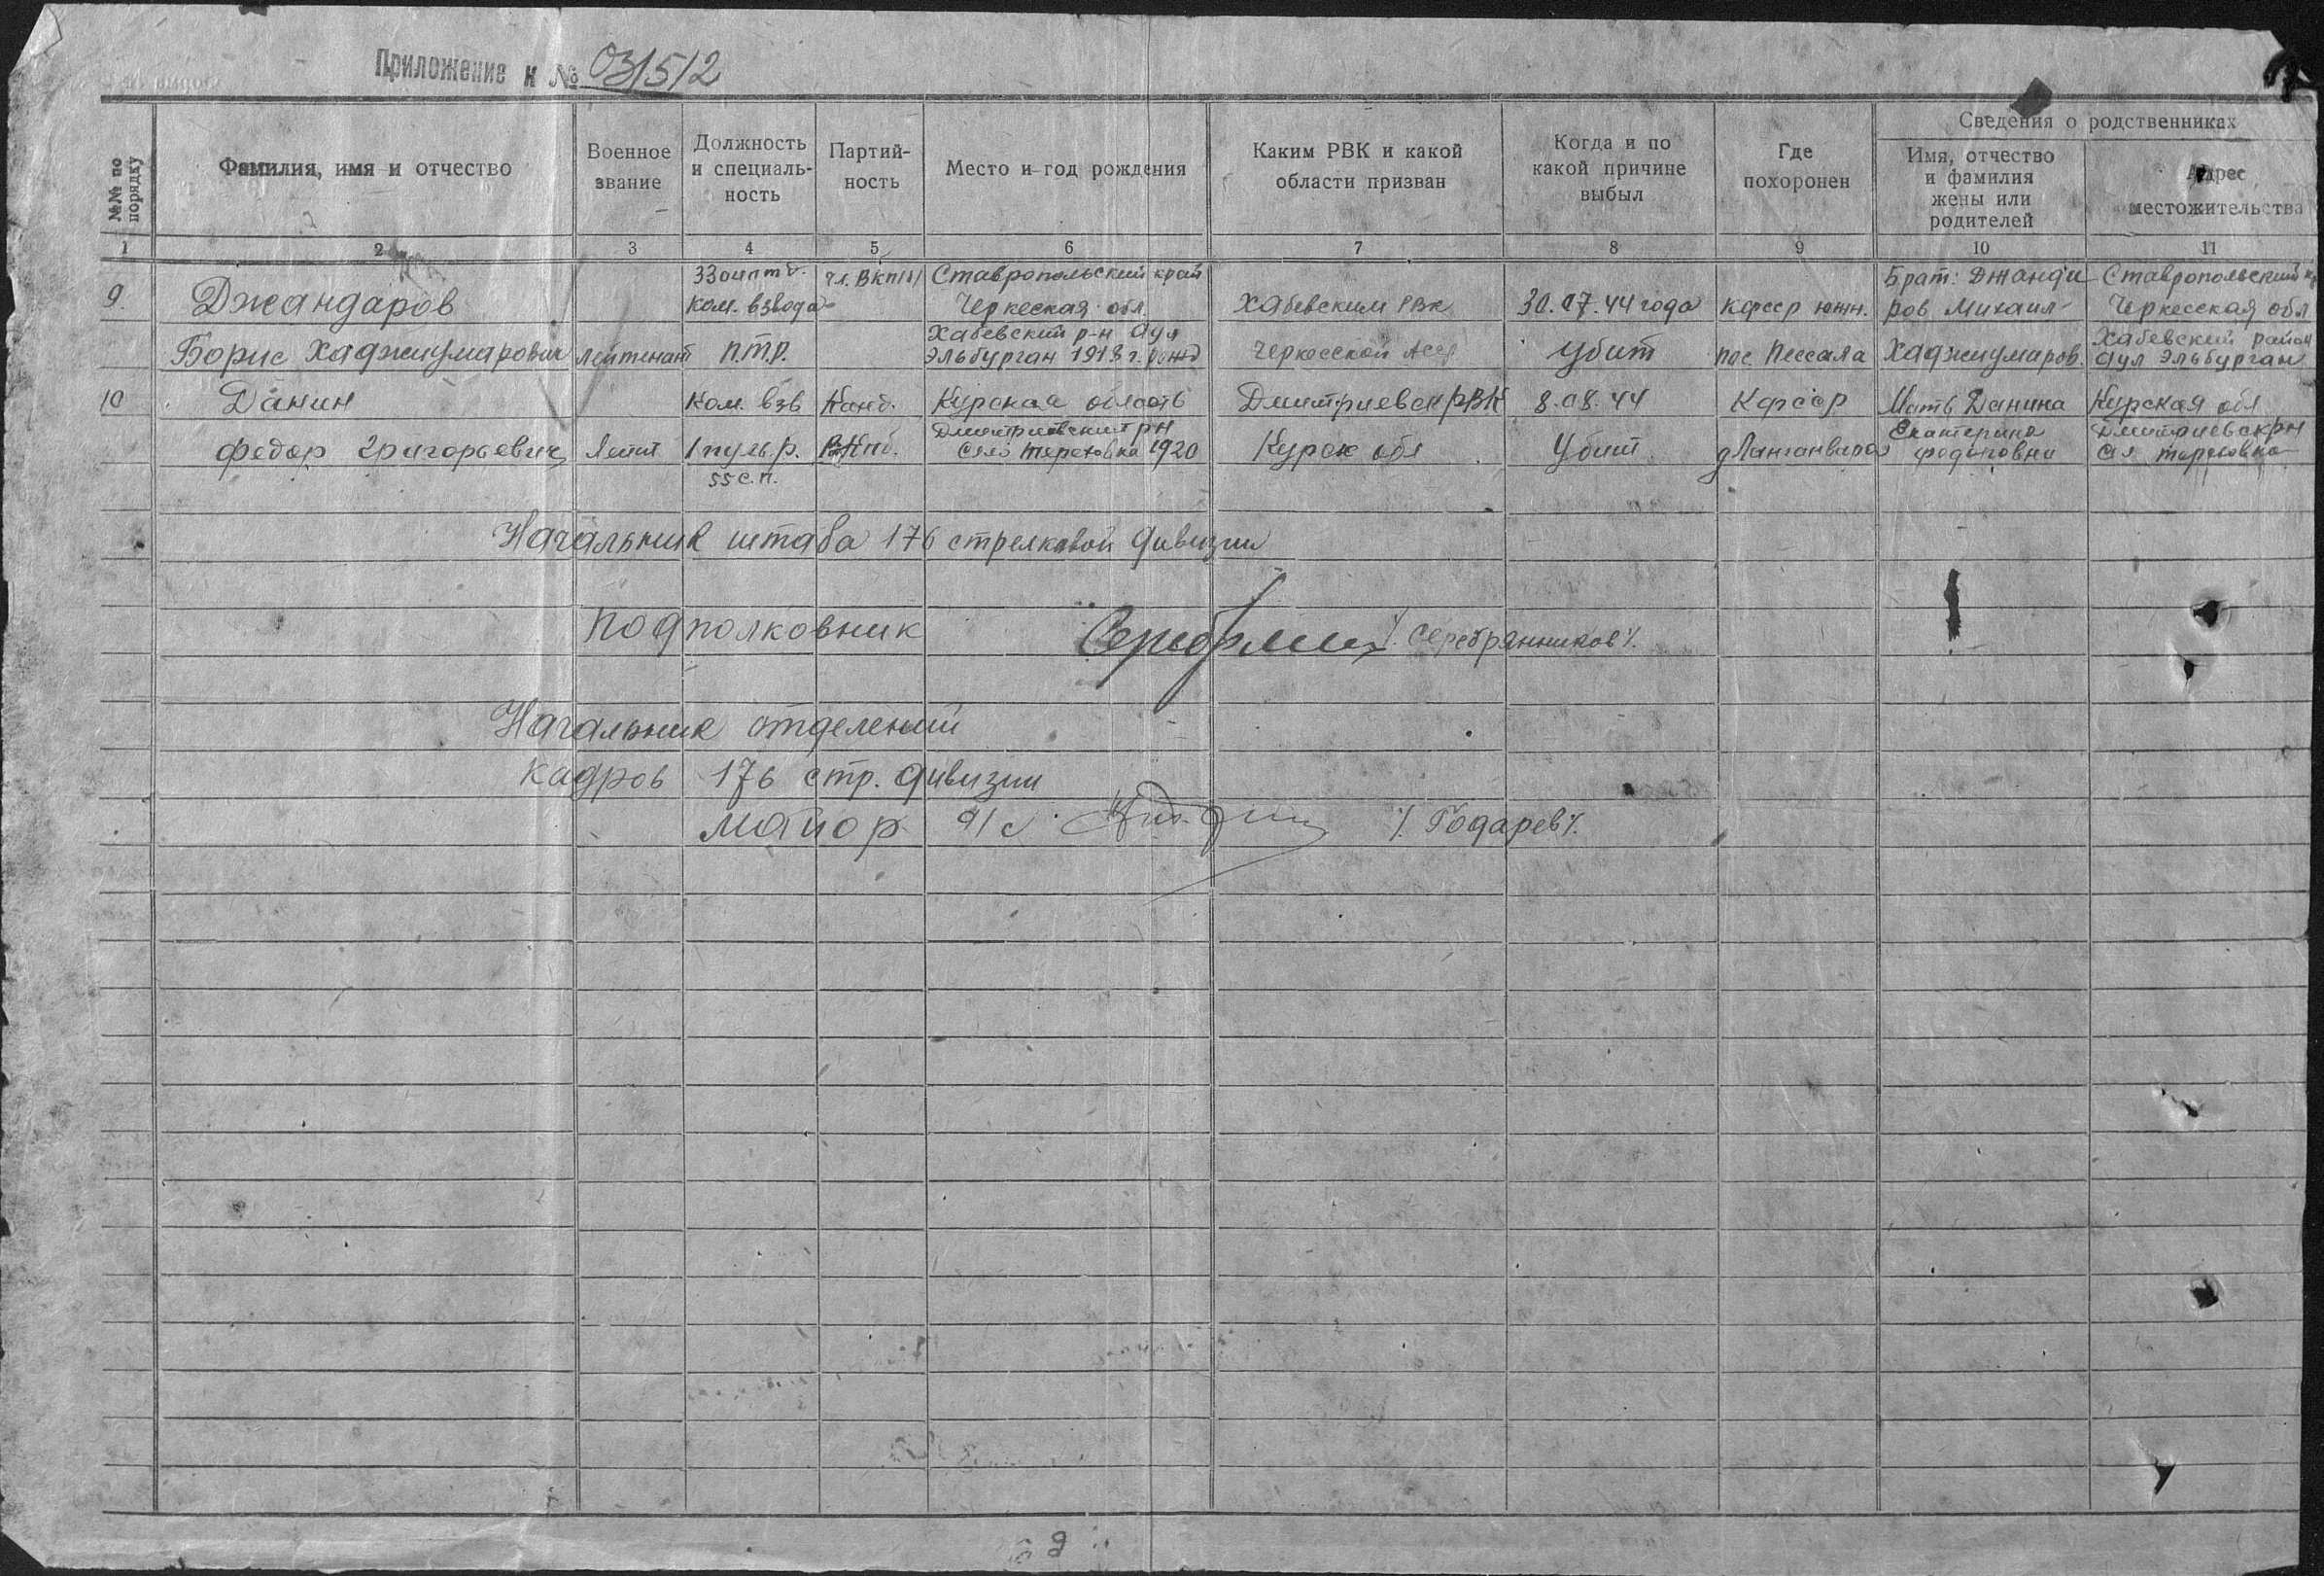 Приложение к № 031512
№№ по порядку
Фамилия, имя и отчество
Военное звание
Должность и специаль-ность
Партий-ность
Место и год рождения
Каким РВК и какой области призван
Когда и по какой причине выбыл
Где похоронен
Сведения о родственниках
Имя, отчество и фамилия жены или родителей
Адрес местожительства
1 2 3 4 5 6 7 8 9 10 11
33 оиптд. чл. ВКП(б) Ставропольский край Брат: Джанда Ставропольский
9. Джандаров ком. взвода Черкеская обл. Хабевским РВК 30.07.44 года Кфсср южн. ров Михаил Черкесская обл
Хабевский р-н аул Хабевский район
Борис Хаджиумарович лейтенант П.Т.Р. Эльбурган 1918 г. рожд Черкесской пос. Пессала убит Хаджиумаров. аул Эльбурган
10 Данин Ком. взв Канд. Курская область Дмитриевск РВК 8.08.44 Кфсср Мать Данина Курская обл
Дмитриевский рн Екатерина Дмитриевск рн
Федор Григорьевич Лейт 1 пуль.р. Село Тереховка 1920 Курск обл Убит Федоровна
55 с.п.
Начальник штаба 176 стрелковой дивизии
подполковник /. Серебрянников/.
Начальник отделений
кадров 176 стр. дивизии
майор а/с /. Годарев/.